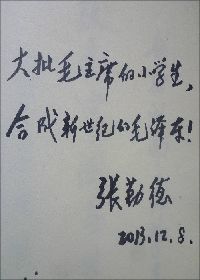 大批毛主席的小学生,
合成新世纪的毛泽东!
张勤德
2013.12.8.